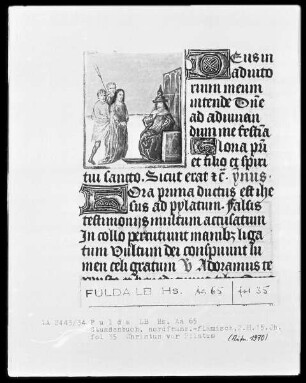 Deus in
adiuto
rium meum
intende Dñe
ad adiuuan
dum me festina
Gloria pr̄i
et filio et spiri
tui sancto. Sicut erat ymus.
Hora prima ductus est ihe
sus ad pylatum. Falsis
testimoniis multum accusatum
In collo percutiunt manibz liga
tum Vultum dei conspuunt lu
men celi gratum V Adoramus te
FULDA LB Hs. Aa 65 fol 35
LA 2445/34 Fulda LB Hs. Aa 65
Stundenbuch, nordfranz.-flämisch, 2.H.15.Jh.
fol 35 Christus vor Pilatus
(Aufn. 1970)